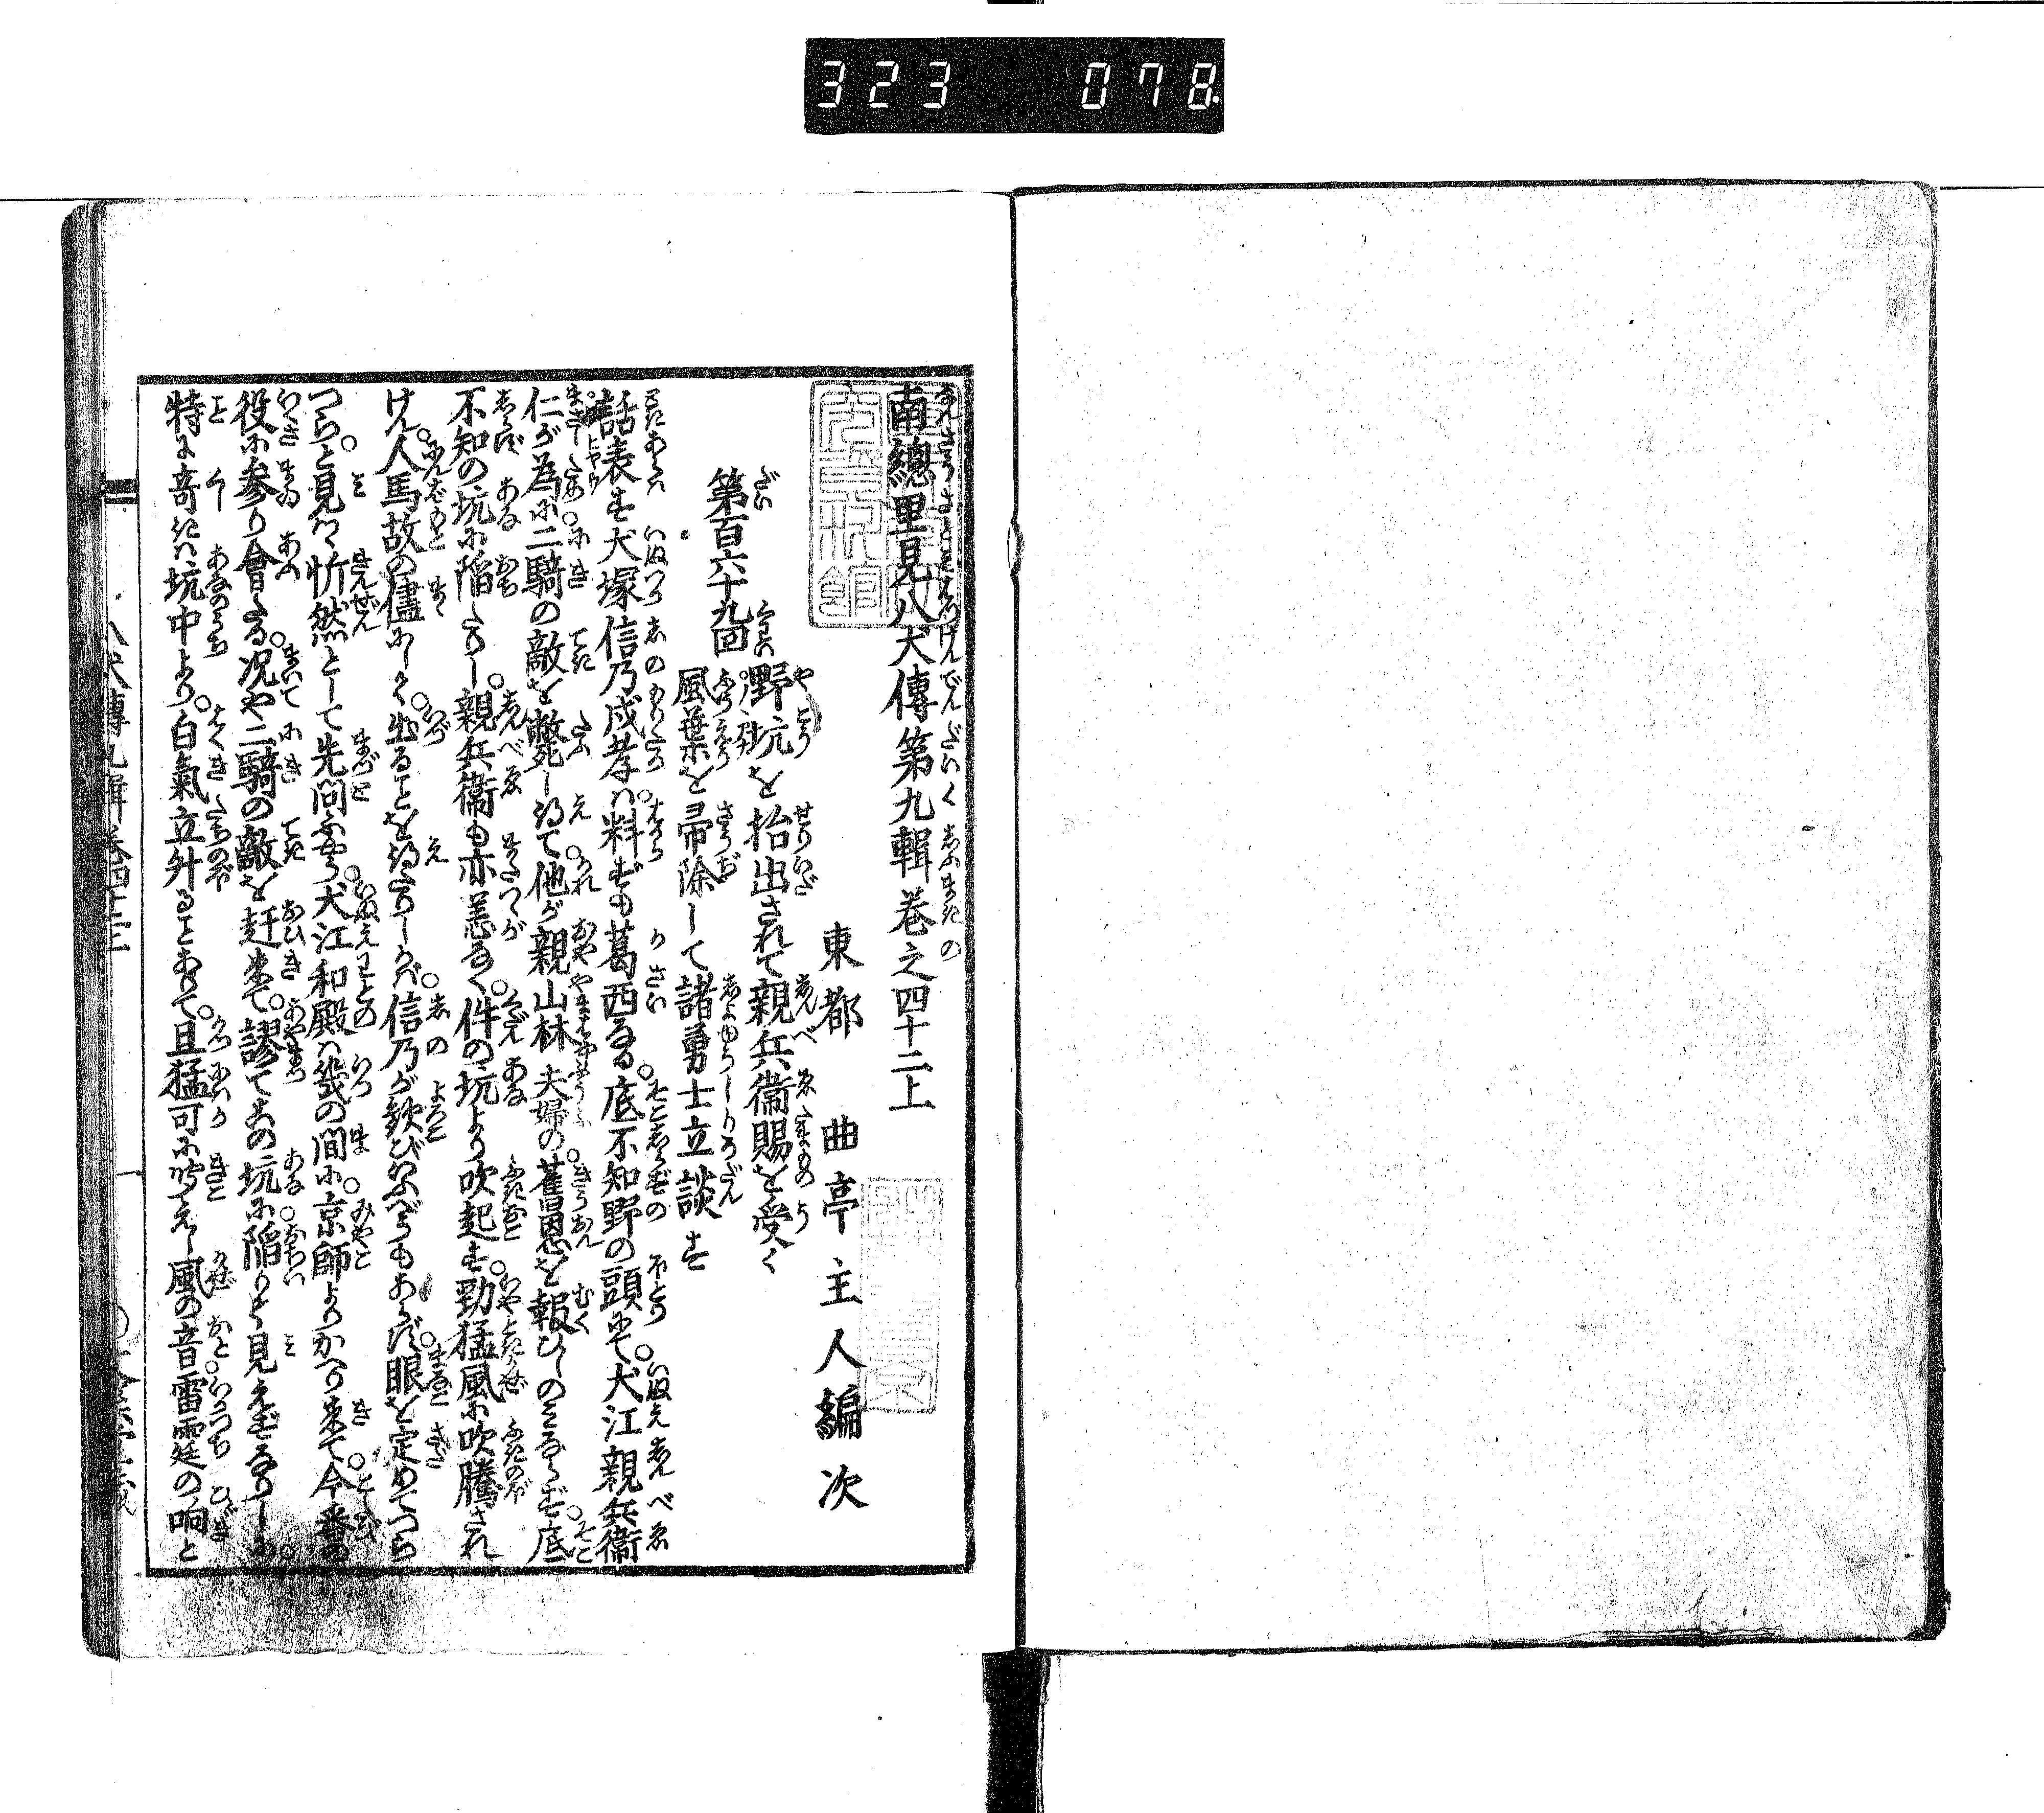 323 078
南總里見八犬傳第九輯卷之四十二上
東都 曲亭主人編次
第百六十九回
野坑を抬出されて親兵衞賜を受く
風葉を帚除して諸勇士立談す
話表す犬塚信乃戍孝は料ずも葛西なる底不知野の頭にて犬江親兵衞
仁が為に二騎の敵を斃し得て他が親山林夫婦の舊恩を報ひしのみならず底
不知の坑に陥たりし親兵衞も亦恙なく件の坑より吹起す勁猛風に吹騰され
けん人馬故の儘にしてく出ることを得たりしかば信乃が歓びいふべうもあらず眼を定めてつら
つらと見て忻然として先問ふやう犬江和殿は幾の間に京師よりかへり来て今番の
役に参り會たる况や二騎の敵を赶来て謬てこの坑に陥りしく見えざるなりしに
特に奇しきは坑中より白氣立升ることありて且猛可に吹えし風の音雷霆の响と
八犬傳九輯卷四十二上